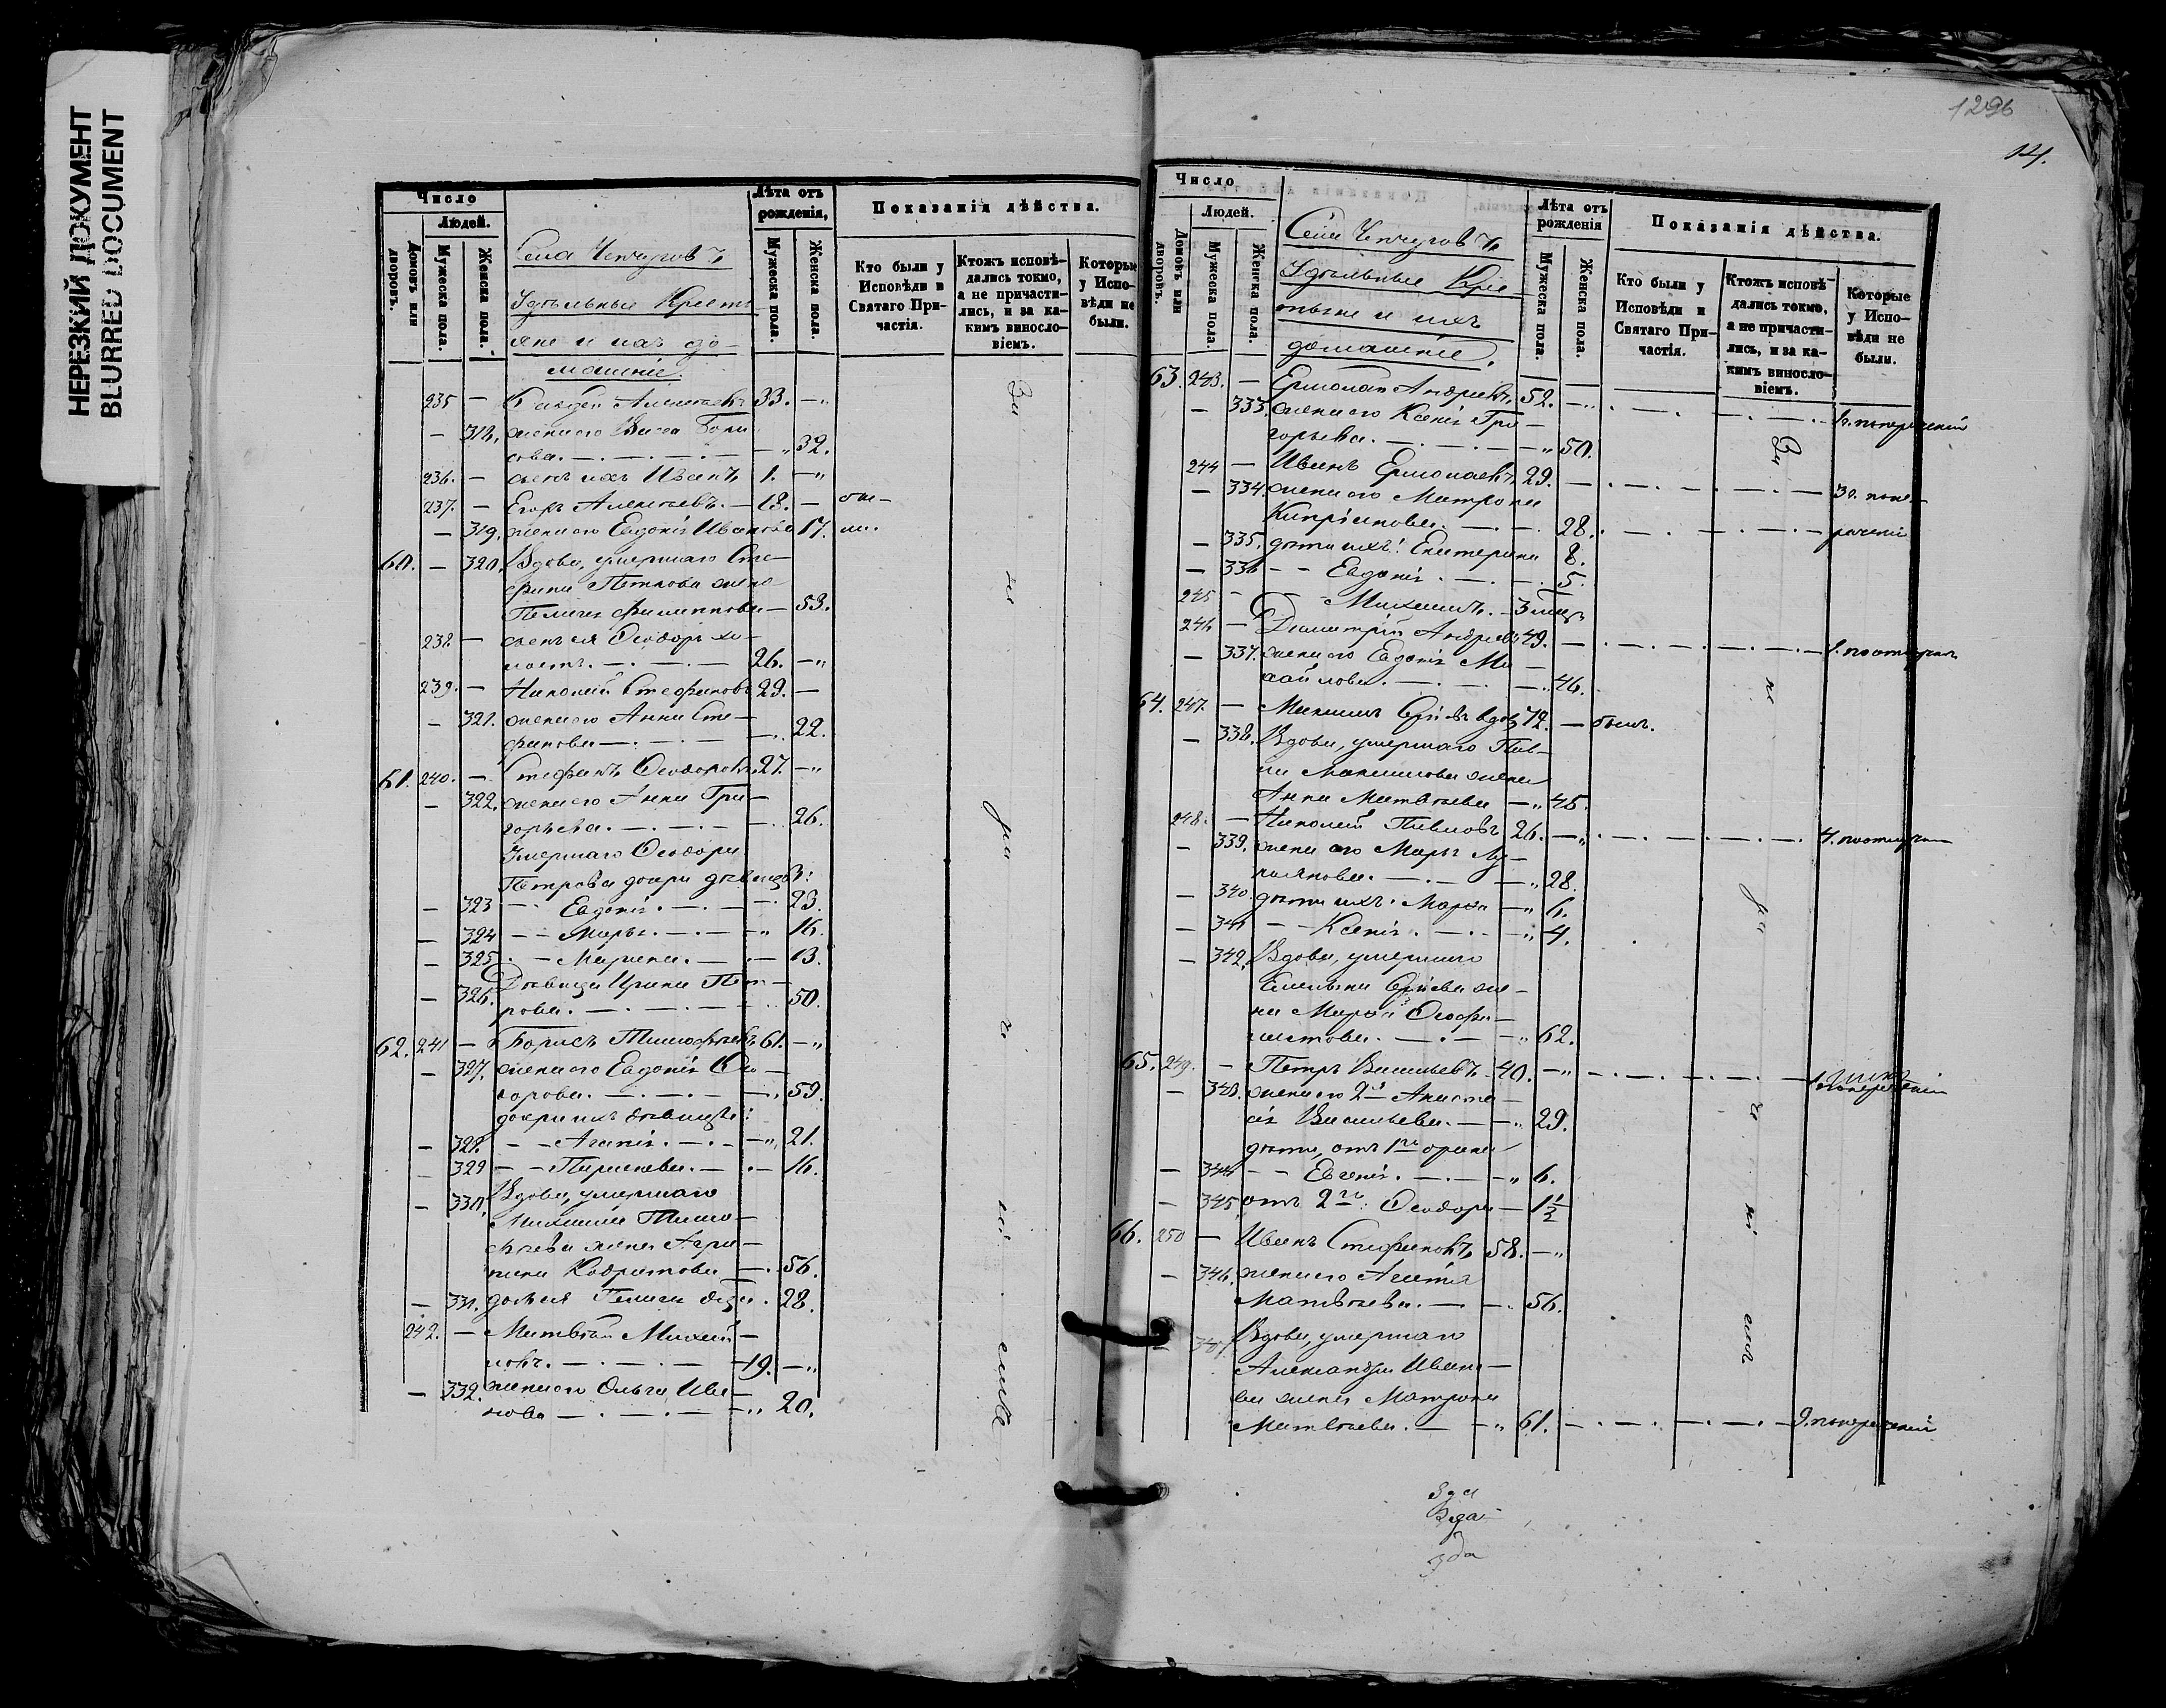 НЕРЕЗКИЙ ДОКУМЕНТ
BLURRED DOCUMENT
Число
Людей.
Домовъ или дворовъ.
Мужеска пола.
Женска пола.
Села
Удѣльные Кресть
яне и ихъ до-
машніе.
Лѣта отъ рожденія,
Мужеска пола.
Женска пола.
Показанія дѣйства.
Кто были у Исповѣди и Святаго При-
частія.
Ктожъ исповѣ-
дались токмо,
а не причасти-
лись, и за ка-
кимъ винсло-
віемъ.
Которые
у Испо-
вѣди не
были.
235 — Алексѣевъ 33. — „
— 318. жена его Васса Бори
сова. — „ 32.
236. — сынъ ихъ Иванъ 1. — „
237. — Егоръ Алексѣевъ. — 18. —
— 319. жена его Евдокія Иванова 17.
60. — 320. Вдова, умершаго Сте-
фана Петрова жена
Пелагея Филиппова — 53.
238. — сынъ ея Ѳеодоръ хо-
лостъ. — 26. — „
239. — Николай Стефановъ 29. —
— 321. жена его Анна Сте-
фанова — 22.
61. 240. — Стефанъ Ѳеодоровъ 27. — „
— 322. жена его Анна Гри-
горьева. — 26.
Умершаго Ѳеодора
Петрова дочери дѣвицы:
— 323 — Евдокія. — 23.
— 324 — Марья. — „ 16.
— 325 — Марина. — 13.
— 326. Дѣвица Ирина Пет-
рова. — 50.
62. 241 — Борисъ Тимоѳеевъ 61. — „
— 327. жена его Евдокія Ѳео-
дорова. — „ 59.
дочери ихъ дѣвицы:
— 328. — Агапія. — „ 21.
— 329 — Параскева. — 16.
— 330. Вдова, умершаго
Михаила Тимо-
ѳеева жена Агри-
пина Кодратова — 56.
— 331. дочь ея Пелагея дѣв. 28.
242. — Матвѣй Михай-
ловъ. — 19. — „
— 332. жена его Ольга Ива-
нова — „ 20.
1296
14.
Число
Людей.
Домовъ или дворовъ.
Мужеска пола.
Женска пола.
Села
Удѣльные Кре-
стьяне и ихъ
домашніе.
Лѣта отъ рожденія
Мужеска пола.
Женска пола.
Показанія дѣйства.
Кто были у
Исповѣди и
Святаго При-
частія.
Ктожъ исповѣ-
дались токмо,
а не причасти-
лись, и за ка-
кимъ винсло-
віемъ.
Которые
у Испо-
вѣди не
были.
63. 243. — Ермолай Андреевъ 52. — „
— 333. жена его Ксенія Гри-
горьева. — „ 50.
244 — Иванъ Ермолаевъ 29. —
— 334. жена его Матрона
Кипріанова. — 28.
— 335. дѣти ихъ: Екатерина 8.
— 336 — Евдокія. — 5.
245 — Михаилъ. — 3 мѣс
246 — Димитрій Андреевъ 49. —
— 337. жена его Евдокія Ми-
хайлова. — „ 46.
64. 247 — вдовъ 72. — былъ.
— 338. Вдова, умершаго Пав-
ла Максимова жена
Анна Матвѣева — „ 45.
248. — Николай Павловъ 26. — „
— 339. жена его Марья Лу-
кьянова. — „ 28.
— 340. дѣти ихъ: Марѳа — „ 6.
— 341 — Ксенія. — „ 4.
— 342. Вдова, умершаго
Емельяна же-
на Ѳеофи-
лактова. — „ 62.
65. 249. — Петръ Васильевъ 40. — „
— 343. жена его 2я Анаста-
сія Васильева. — „ 29.
дѣти, отъ 1го брака
— 344 — Евгенія. — „ 6.
— 345 отъ 2го: Ѳеодора — 1½
66. 250 — Иванъ Стефановъ 58. — „
— 346. жена его Агаѳія
Матвѣева. — 56.
347 Вдова, умершаго
Александра Ивано-
ва жена Матрона
Матвѣева. — „ 61.